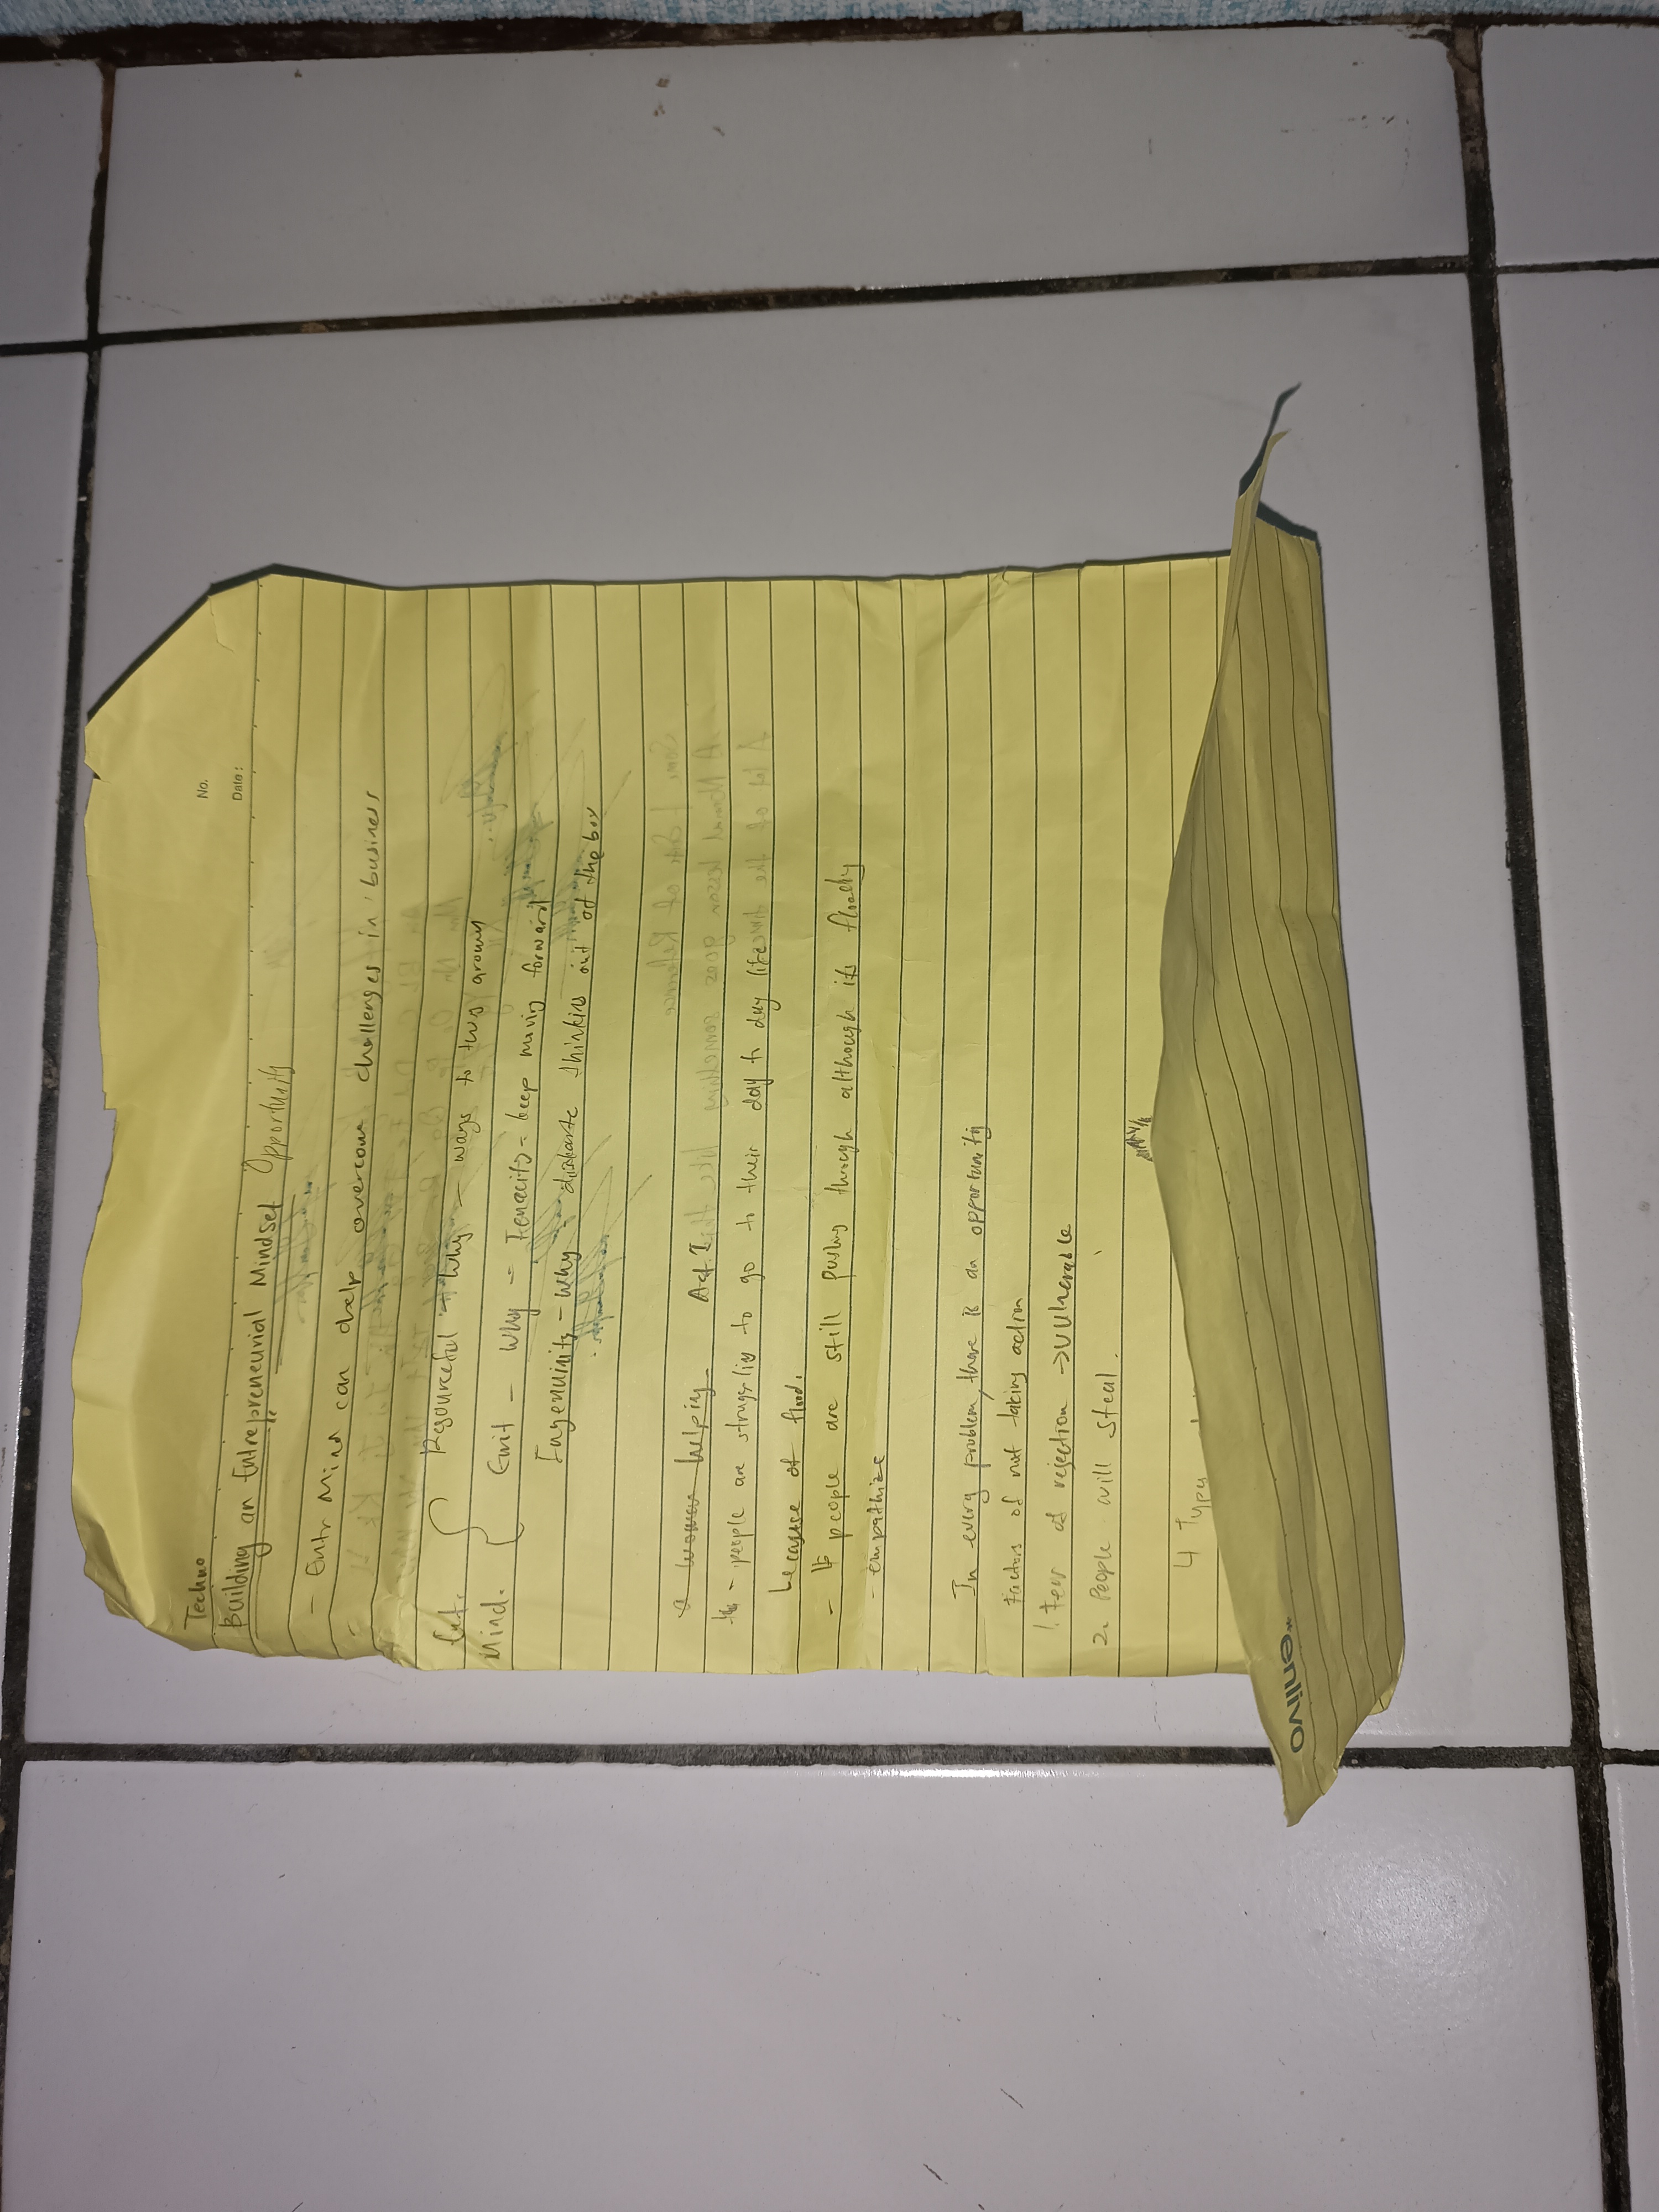 No.
Date:
Techno
Building an Entrepreneurial Mindset Opportunity
- Entr Mind can help overcome challenges in business
Ent. Mind.
Resourceful - Why - ways to twg around
Grit - Why - Tenacity - keep moving forward
Ingenuinity - Why thinking out of the box
a woman helping Act I
- people are strugerlig to go to their day to day life
because of flood.
- If people are still pushing through although its floody
- empathize
In every problem, there is an opportunity
Factors of not taking action
1. fear of rejection → Vulnerable
2. People will steal.
4 Type
enlivo